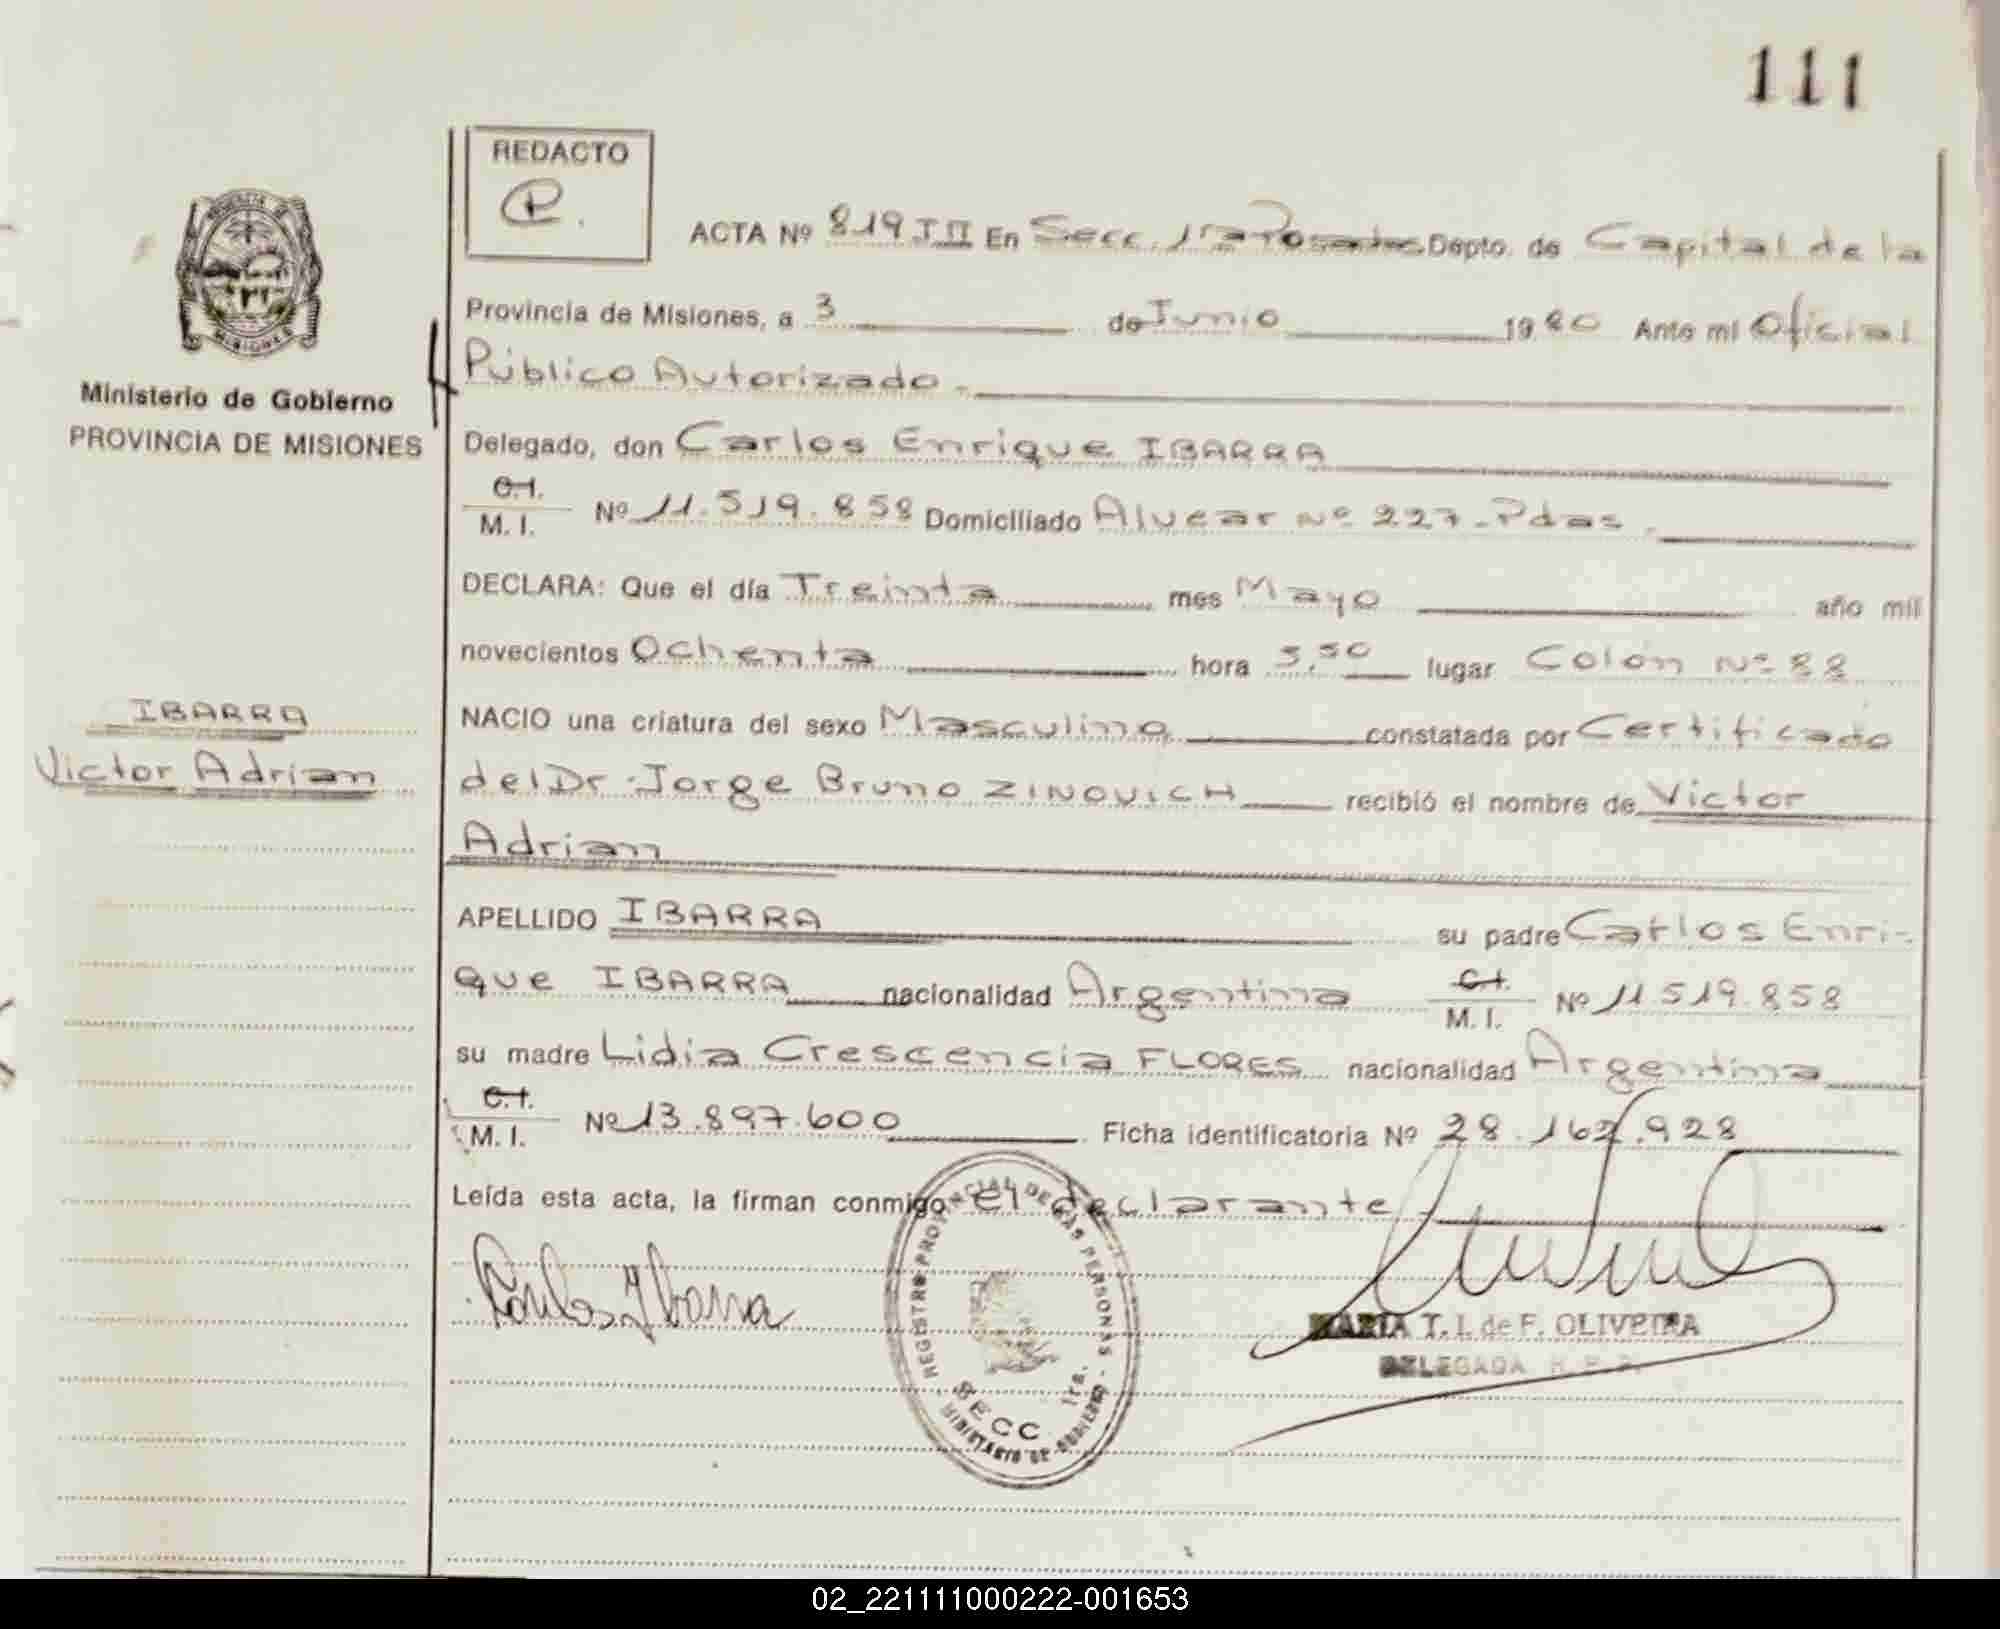 111
REDACTO
P.
ACTA Nº 819 T II En Secc. 1ra Posadas Depto. de Capital de la
Provincia de Misiones, a 3 de Junio 1980 Ante mi Oficial
Público Autorizado.
Ministerio de Gobierno
PROVINCIA DE MISIONES
Delegado, don Carlos Enrique IBARRA
C.I.
M. I. Nº 11.519.858 Domiciliado Alvear Nº 227-Pdas.
DECLARA: Que el día Treinta mes Mayo año mil
novecientos Ochenta hora 3,50 lugar Colón Nº 88
IBARRA
Victor Adrian
NACIO una criatura del sexo Masculino constatada por Certificado
del Dr. Jorge Bruno ZINOVICH recibió el nombre de Victor
Adrian
APELLIDO IBARRA su padre Carlos Enri-
que IBARRA nacionalidad Argentina C.I. M. I. Nº 11.519.858
su madre Lidia Crescencia FLORES nacionalidad Argentina
C.I.
M. I. Nº 13.897.600 Ficha identificatoria Nº 28.162.928
Leída esta acta, la firman conmigo el declarante
Carlos Ibarra
REGISTRO PROVINCIAL DE LAS PERSONAS - MINISTERIO DE GOBIERNO
SECC. 1ra.
MARIA T. I. de F. OLIVEIRA
DELEGADA R. P. P.
02_221111000222-001653